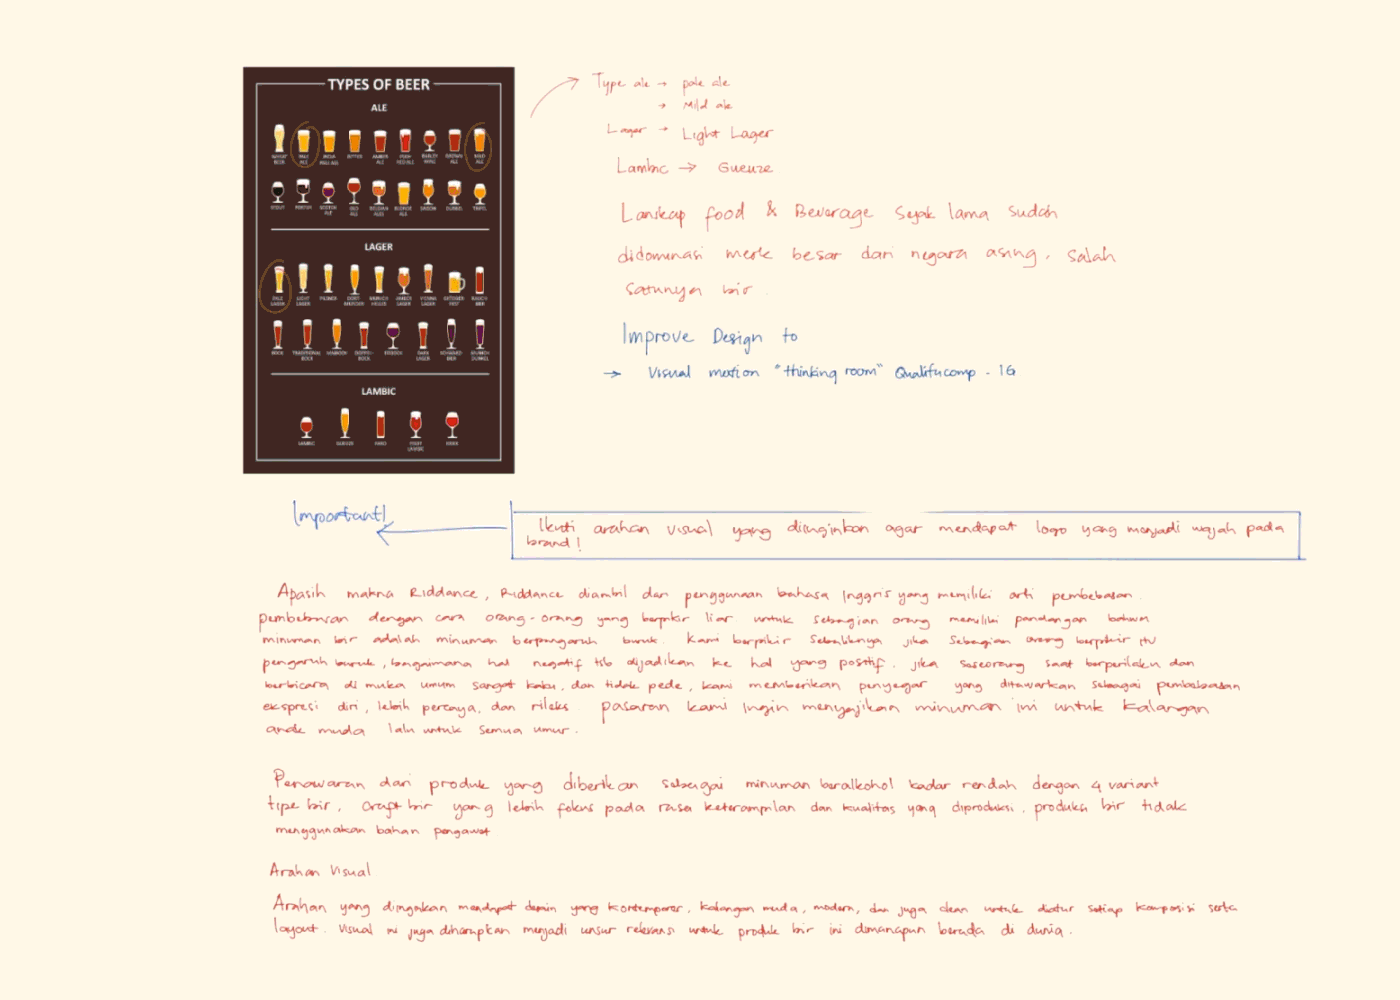 TYPES OF BEER
ALE
WHEAT BEER
PALE ALE
INDIA PALE ALE
BITTER
AMBER ALE
IRISH RED ALE
BARLEY WINE
BROWN ALE
MILD ALE
STOUT
PORTER
SCOTCH ALE
OLD ALE
BELGIAN ALES
BLONDE ALE
SAISON
DUBBEL
TRIPEL
LAGER
PALE LAGER
LIGHT LAGER
PILSNER
DORT-MUNDER
MUNICH HELLES
AMBER LAGER
VIENNA LAGER
OKTOBER FEST
BOCK
TRADITIONAL BOCK
MAIBOCK
DOPPEL-BOCK
EISBOCK
DARK LAGER
SCHWARZ BIER
MUNICH DUNKEL
LAMBIC
LAMBIC
GUEUZE
FARO
FRUIT LAMBIC
Type ale → pale ale
→ Mild ale
Lager → Light Lager
Lambic → Gueuze
Lanskap food & Beverage Sejak lama sudah
didominasi merk besar dari negara asing, salah
satunya bir.
Improve Design to
→ Visual motion "thinking room" Qualifucomp - IG
Important!
Ikuti arahan visual yang diinginkan agar mendapat logo yang menjadi wajah pada
brand!
Apasih makna Riddance, Riddance diambil dari penggunaan bahasa Inggris yang memiliki arti pembebasan.
pembebasan dengan cara orang-orang yang berpikir liar untuk sebagian orang memiliki pandangan bahwa
minuman bir adalah minuman berpengaruh buruk. Kami berpikir sebaliknya jika sebagian orang berpikir itu
pengaruh buruk, bangaimana hal negatif tsb dijadikan ke hal yang positif. jika seseorang saat berperilaku dan
berbicara di muka umum sangat kaku, dan tidak pede, kami memberikan penyegar yang ditawarkan sebagai pembebasan
ekspresi diri, lebih percaya, dan rileks. pasaran kami ingin menyajikan minuman ini untuk kalangan
anak muda lalu untuk semua umur.
Penawaran dari produk yang diberikan sebagai minuman beralkohol kadar rendah dengan 4 variant
tipe bir, craft bir yang lebih fokus pada rasa keterampilan dan kualitas yang diproduksi, produksi bir tidak
menggunakan bahan pengawet
Arahan Visual
Arahan yang diinginkan mendapat desain yang kontemporer, kalangan muda, modern, dan juga clean untuk diatur setiap komposisi serta
layout. Visual ini juga diharapkan menjadi unsur relevansi untuk produk bir ini dimanapun berada di dunia.